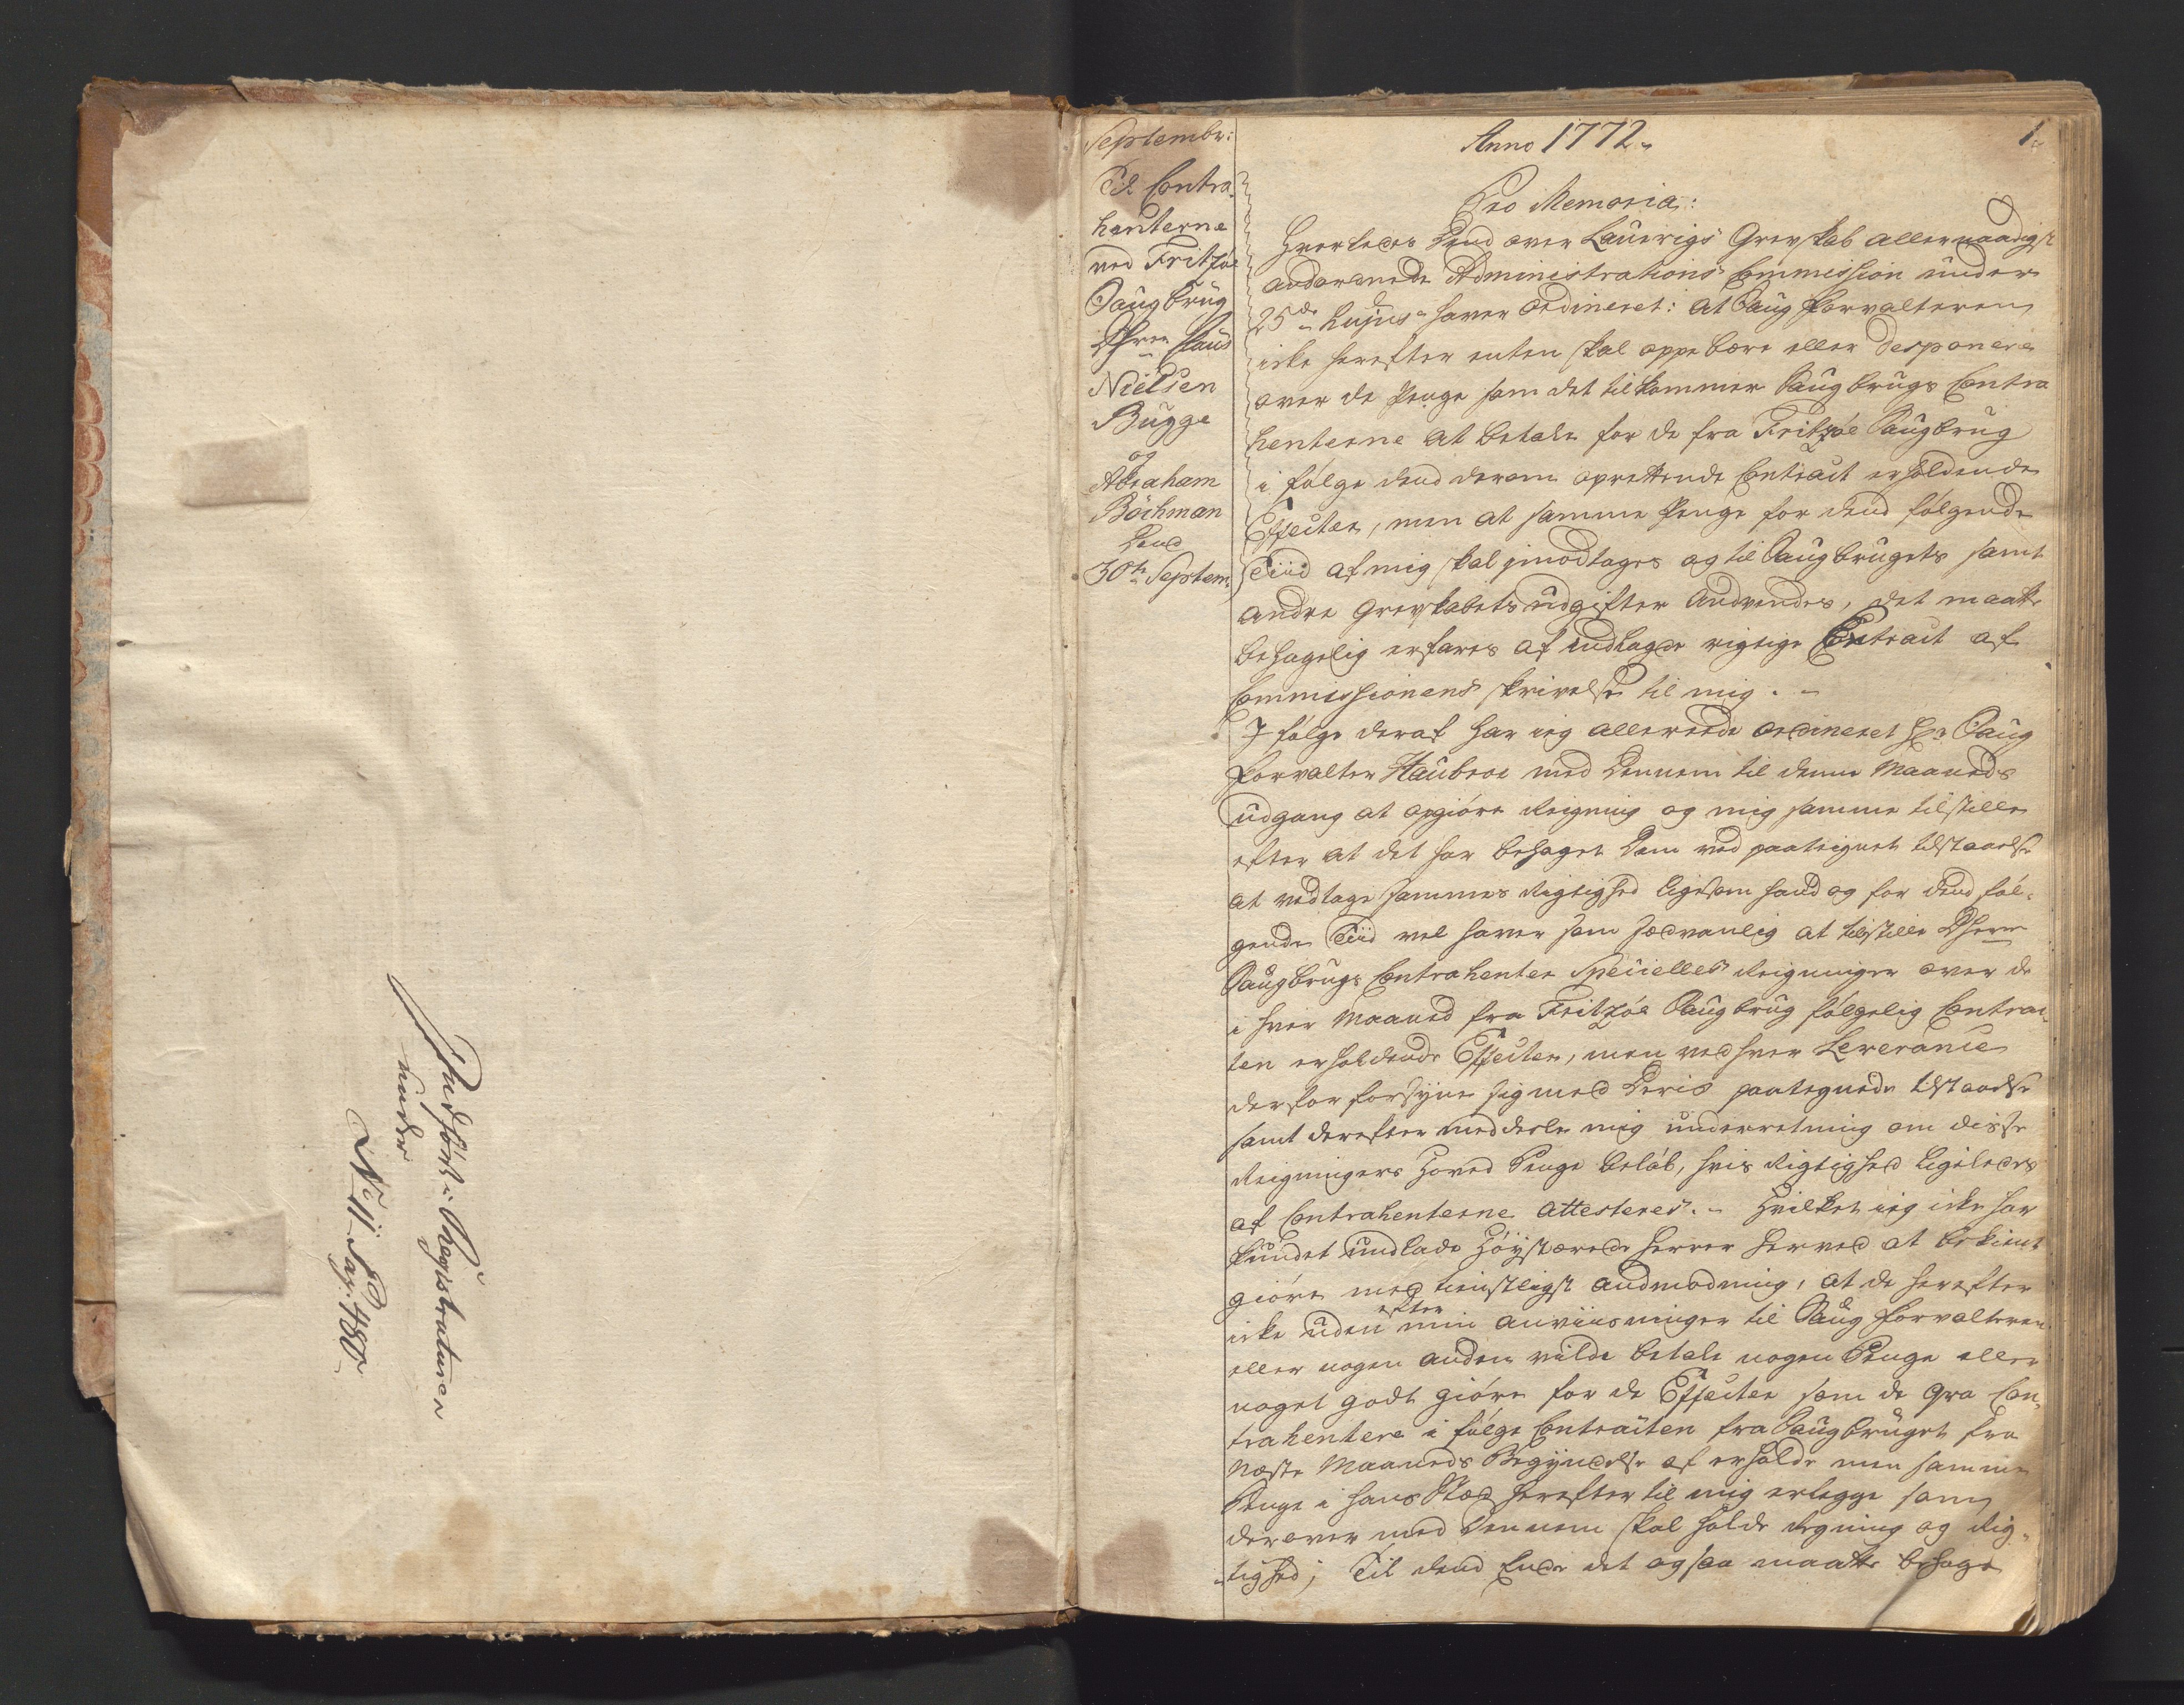 Indført i Registraturen
under
No 11. Pag: 480.
Septembr:
Til Contra
henterne
ved Fritzöe
Saugbrug
Dhrr Claus
Nielsen
Bugge
og
Abraham
Böckman
Dend
30te Septem:
Anno 1772.
1.
Pro Memoria:
Hvorledes dend over Laurvigs Grevskab allernaadigst
andordnede Administrations Commission under
25de hujus haver ordineret: at Saug Forvalteren
icke herefter enten skal oppebære eller disponere
over de Penge som det tilkommer Saugbrugs Contra
henterne at betale for de fra Fritzöe Saugbrug
i følge dend derom oprettende Contract erholdende
Effecter, men at samme Penge for dend følgende
Tiid af mig skal imodtages og til Saugbrugets samt
andre Grevskabets udgifter Andvendes, det maatte
behagelig erfares af indlagde rigtige Extract af
Commissionens skrivelse til mig. -
I følge deraf har ieg allereede ordineret Hr Saug
Forvalter Haubroe med Dennem til denne Maaneds
udgang at opgiöre Reigning og mig samme tilstille
efter at det har behaget Dem ved paateignet tilstaaelse
at vedtage sammes Rigtighed ligesom hand og for dend føl-
gende Tiid vel haver som sædvanlig at tilstille Dherr
Saugbrugs Contrahenter Specielles Reigninger over de
i hver Maaned fra Fritzöe Saugbrug følgelig Contrac-
ten erholdende Effecter, men ved hver Leverance
derfor forsyne sig med Deris paategnede tilstaaelse
samt derefter meddeele mig underretning om disse
Reigningers Hoved Penge beløb, hvis Rigtighed ligeledes
af Contrahenterne Attesteres. - Hvilket ieg icke har
kundet undlade Höystærede Herrer herved at bekient
giöre med tienstligst andmodning, at de herefter
icke uden efter min anviisninger til Saug Forvalteren
eller nogen anden vilde betale nogen Penge eller
noget godt giöre for de Effecter som de qva Con-
trahentere i følge Contracten fra Saugbruget fra
Næste Maaneds Begyndelse af erholde men samme
Penge i hans Stæd herefter til mig erlegge som
derover med Dennem skal holde Regning og Rig-
tighed; Til dend Ende det og saa maatte behage